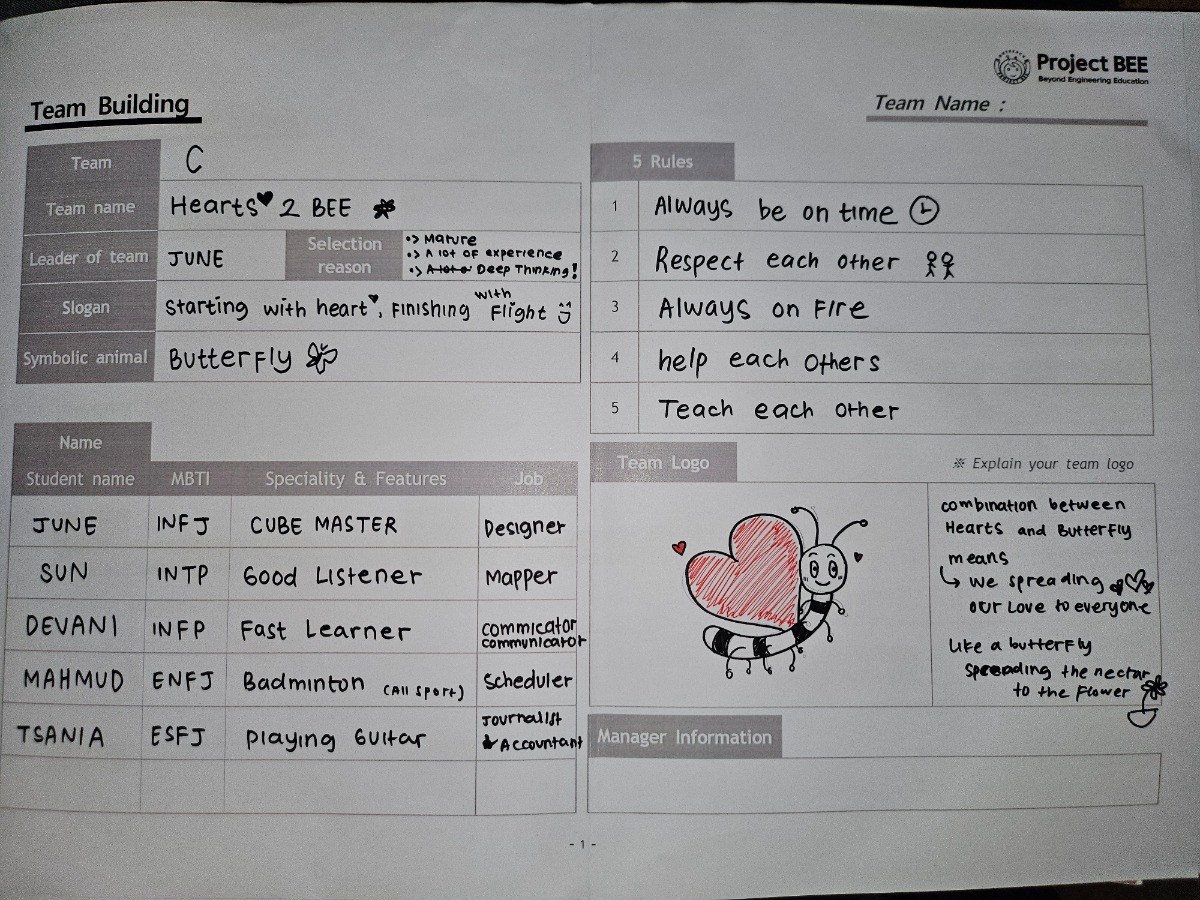 Project BEE
Beyond Engineering Education
Team Building
Team Name :
Team C
Team name Hearts 2 BEE
Leader of team JUNE Selection reason •> Mature
•> A lot of experience
•> A lot o Deep Thinking!
Slogan Starting with heart, Finishing with Flight
Symbolic animal Butterfly
5 Rules
1 Always be on time
2 Respect each other
3 Always on Fire
4 help each others
5 Teach each other
Name
Student name MBTI Speciality & Features Job
JUNE INFJ CUBE MASTER Designer
SUN INTP Good Listener Mapper
DEVANI INFP Fast Learner commicator
communicator
MAHMUD ENFJ Badminton (All sport) Scheduler
TSANIA ESFJ Playing Guitar Journalist
& Accountant
Team Logo
※ Explain your team logo
combination between
Hearts and Butterfly
means
↳ we spreading
our Love to everyone
Like a butterfly
spreading the nectar
to the flower
Manager Information
- 1 -